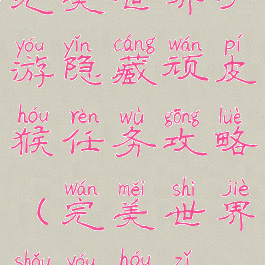 yóu yǐn cáng wán pí
游隐藏顽皮
hóu rèn wù gōng lüè
猴任务攻略
wán měi shì jiè
（完美世界
shǒu yóu hóu zǐ